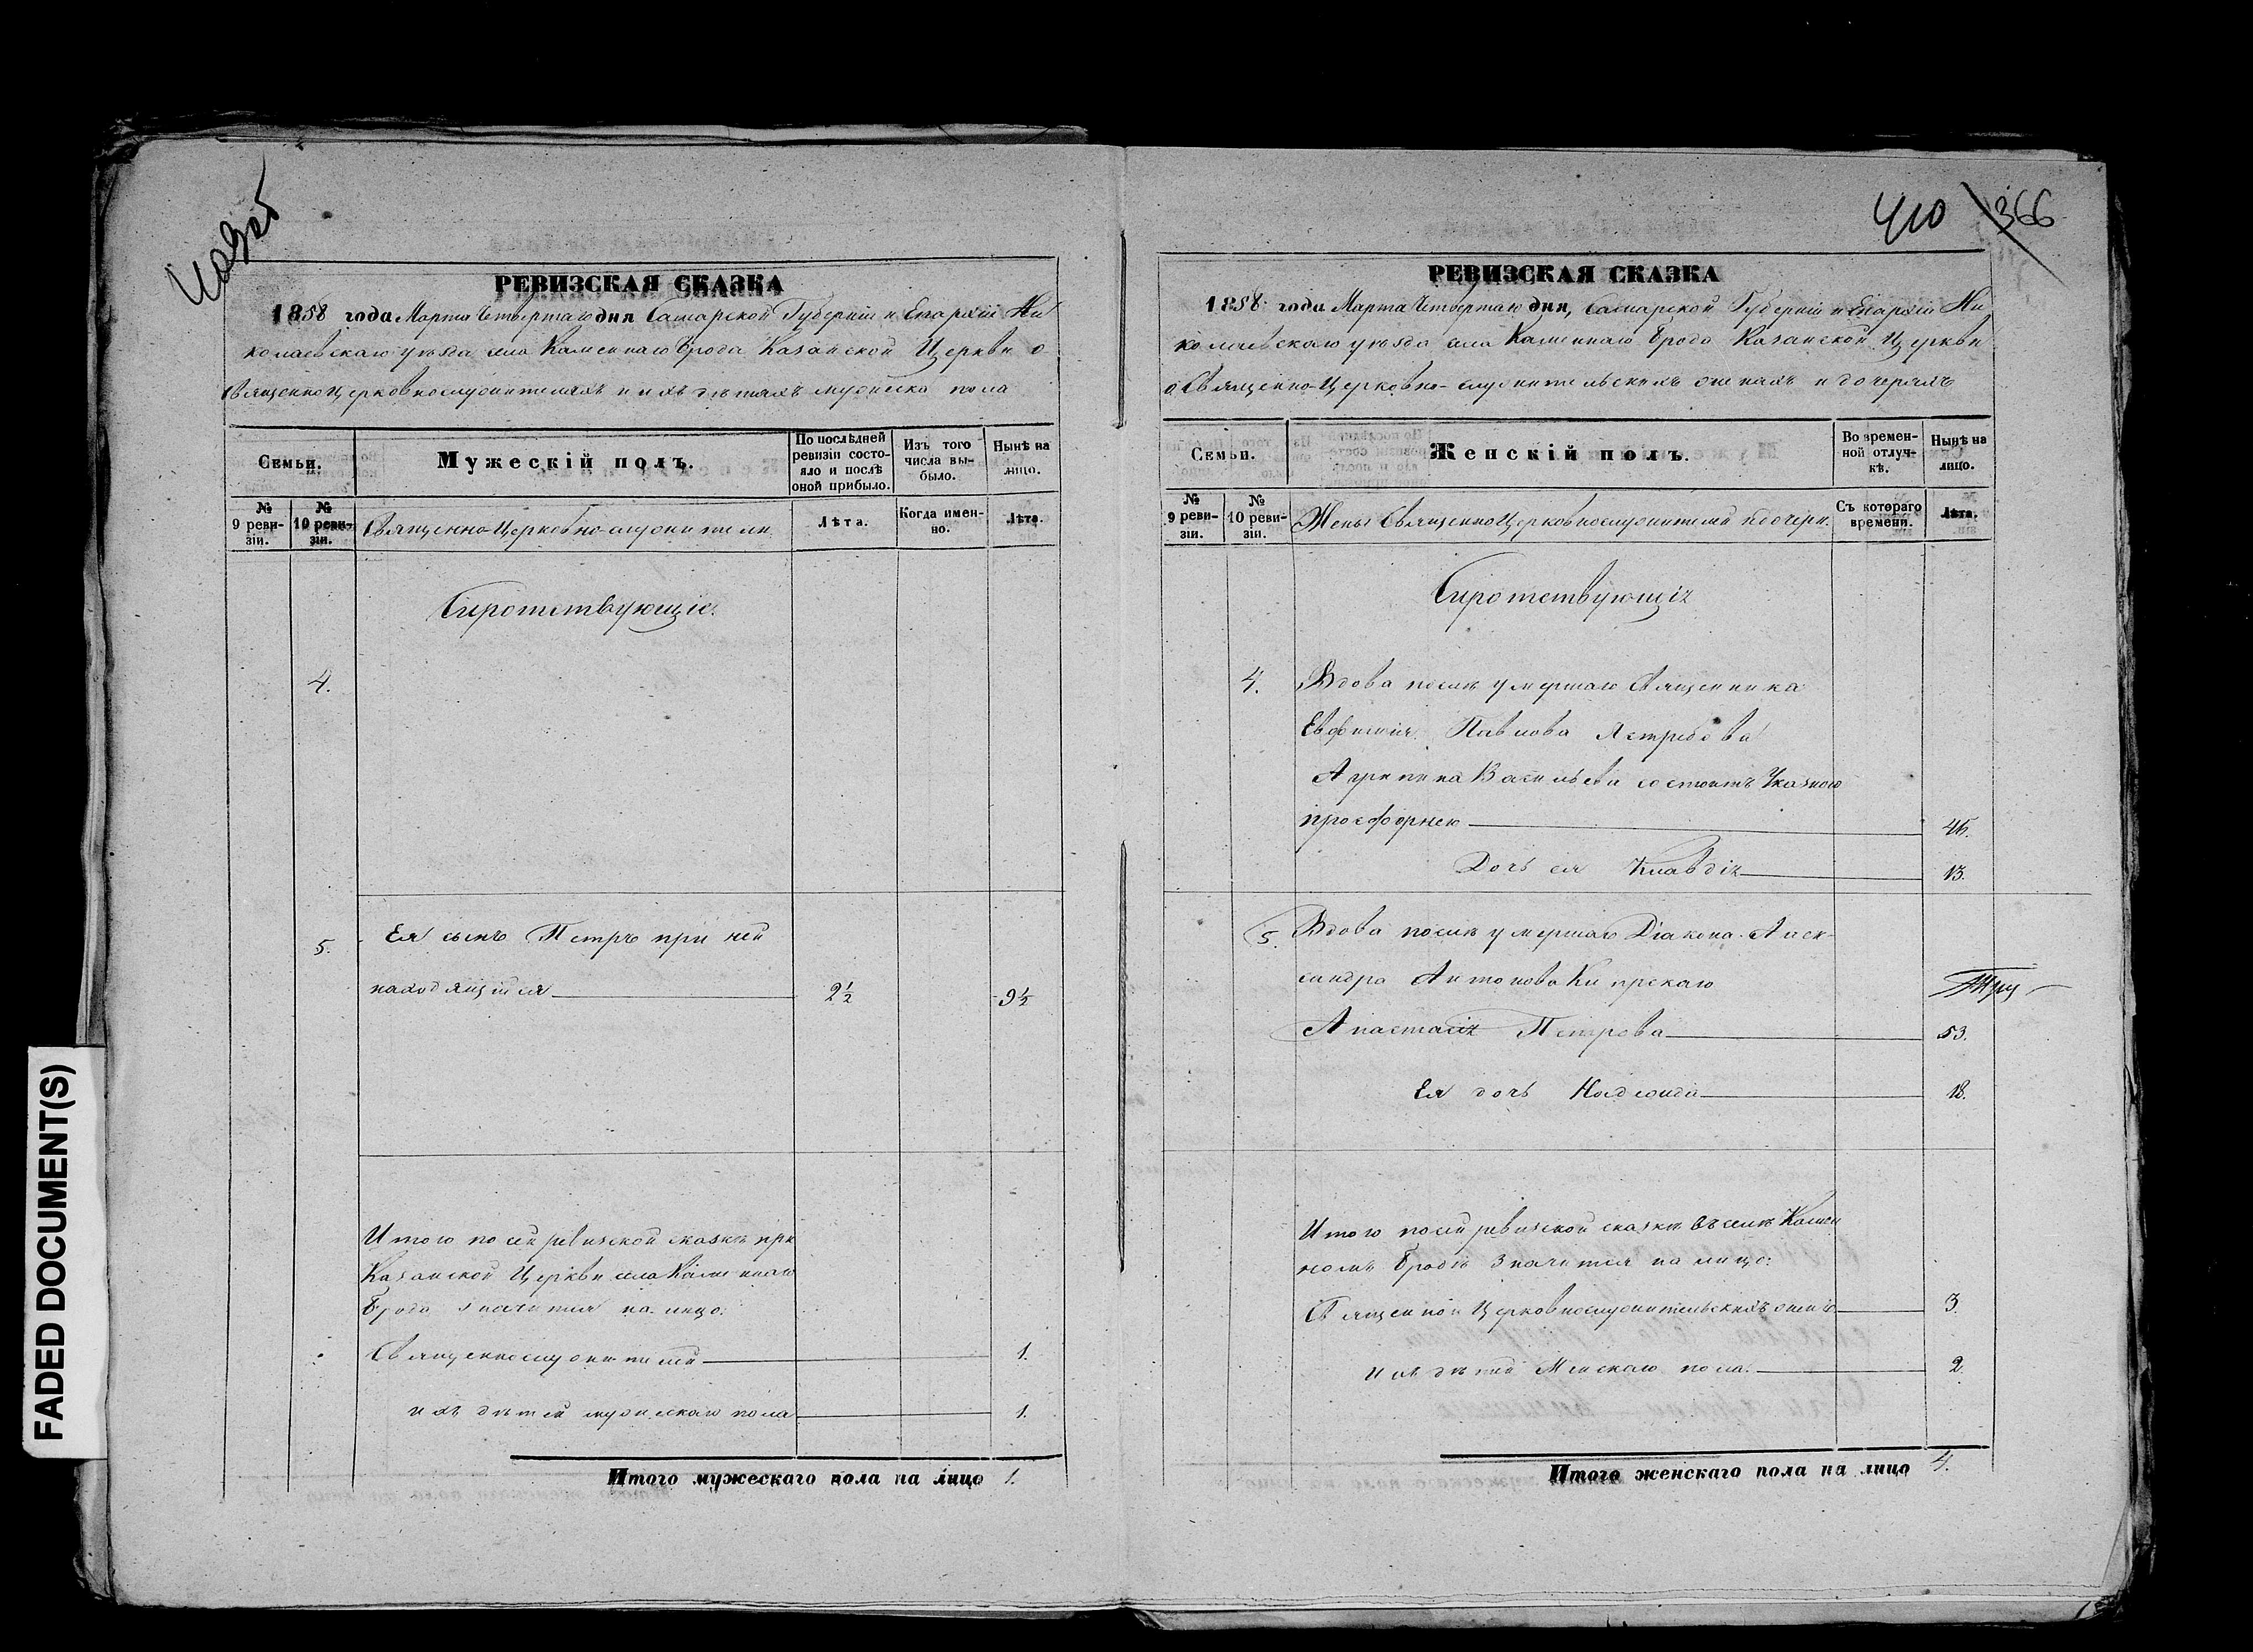 409об
РЕВИЗСКАЯ СКАЗКА
1858 года Марта Четвертаго дня Самарской Губерніи и Епархіи Ни
колаевскаго уѣзда села Каменнаго Брода Казанской Церкви о
Священноцерковнослужителяхъ и ихъ дѣтяхъ мужеска пола
Семьи.
Мужескій полъ.
По послѣдней ревизіи состояло и послѣ оной прибыло.
Изъ того числа выбыло.
Нынѣ на лицо.
№ 9 ревизіи.
№ 10 ревизіи.
Священно-Церковно-служители
Лѣта.
Когда именно.
Лѣта.
Сиротствующіе.
4.
5. Ея сынъ Петръ при ней
находящійся 2½ 9½
Итого по сей ревизской сказкѣ при
Казанской Церкви села Каменнаго
Брода значится на лицо:
Священнослужителей 1.
ихъ дѣтей мужескаго пола 1.
Итого мужескаго пола на лицо 1.
410 366
РЕВИЗСКАЯ СКАЗКА
1858 года Марта Четвертаго дня, Самарской Губерніи и Епархіи Ни
колаевскаго уѣзда села Каменнаго Брода Казанской Церкви
о Священно-Церковно-служительскихъ женахъ и дочеряхъ
Семьи.
Женскій полъ.
Во временной отлучкѣ.
Нынѣ на лицо.
№ 9 ревизіи.
№ 10 ревизіи.
Жены Священноцерковнослужителей и дочери.
Съ котораго времени.
Лѣта.
Сиротствующія
4. Вдова послѣ умершаго Священника
Евфимія Павлова Ястребова
Агрипина Васильева состоитъ Указною
просфорнею 45.
Дочь ея Клавдія 13.
5. Вдова послѣ умершаго Діакона Алек-
сандра Антонова Кипрскаго
Анастасія Петрова 53.
Ея дочь Надежда 18.
Итого по сей ревизской сказкѣ въ селѣ Камен
номъ Бродѣ значится на лицо:
Священно и Церковнослужительскихъ женъ 3.
ихъ дѣтей Женскаго пола 2.
Итого женскаго пола на лицо 4.
FADED DOCUMENT(S)